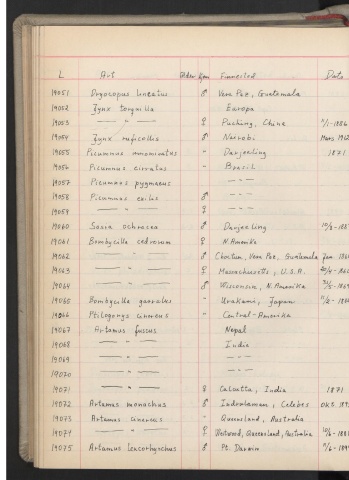 L Art Alder Kjøn Funnsted Dato
19051 Dryocopus lineatus ♂ Vera Paz, Guatemala
19052 Jynx torquilla Europa
19053 — " — ♀ Pucking, China 2/1-1886
19054 Jynx ruficollis ♂ Nairobi Mars 1912
19055 Picumnus innominatus " Darjeeling 1871
19056 Picumnus cirratus " Brasil
19057 Picumnus pygmaeus — — —
19058 Picumnus exilis ♂ — — —
19059 — " — ♀ — — —
19060 Sasia ochracea ♂ Darjeeling
19061 Bombycilla cedrorum ♀ N. Amerika
19062 — " — ♂ Choctum, Vera Paz, Guatemala Jan.
19063 — " — ♀ Massachusetts, U.S.A.
19064 — " — ♂ Wisconsin, N. Amerika
19065 Bombycilla garrulus " Urakami, Japan
19066 Ptilogonys cinereus " Central-Amerika
19067 Artamus fuscus Nepal
19068 — " — India
19069 — " — — — —
19070 — " — — — —
19071 — " — ♀ Calcutta, India 1871
19072 Artamus monachus ♂ Indoolaman, Celebes Okt.
19073 Artamus cinereus " Queensland, Australia
19074 — " — ♀ Westwood, Queensland, Australia
19075 Artamus leucorhynchus ♂ Pt. Darwin